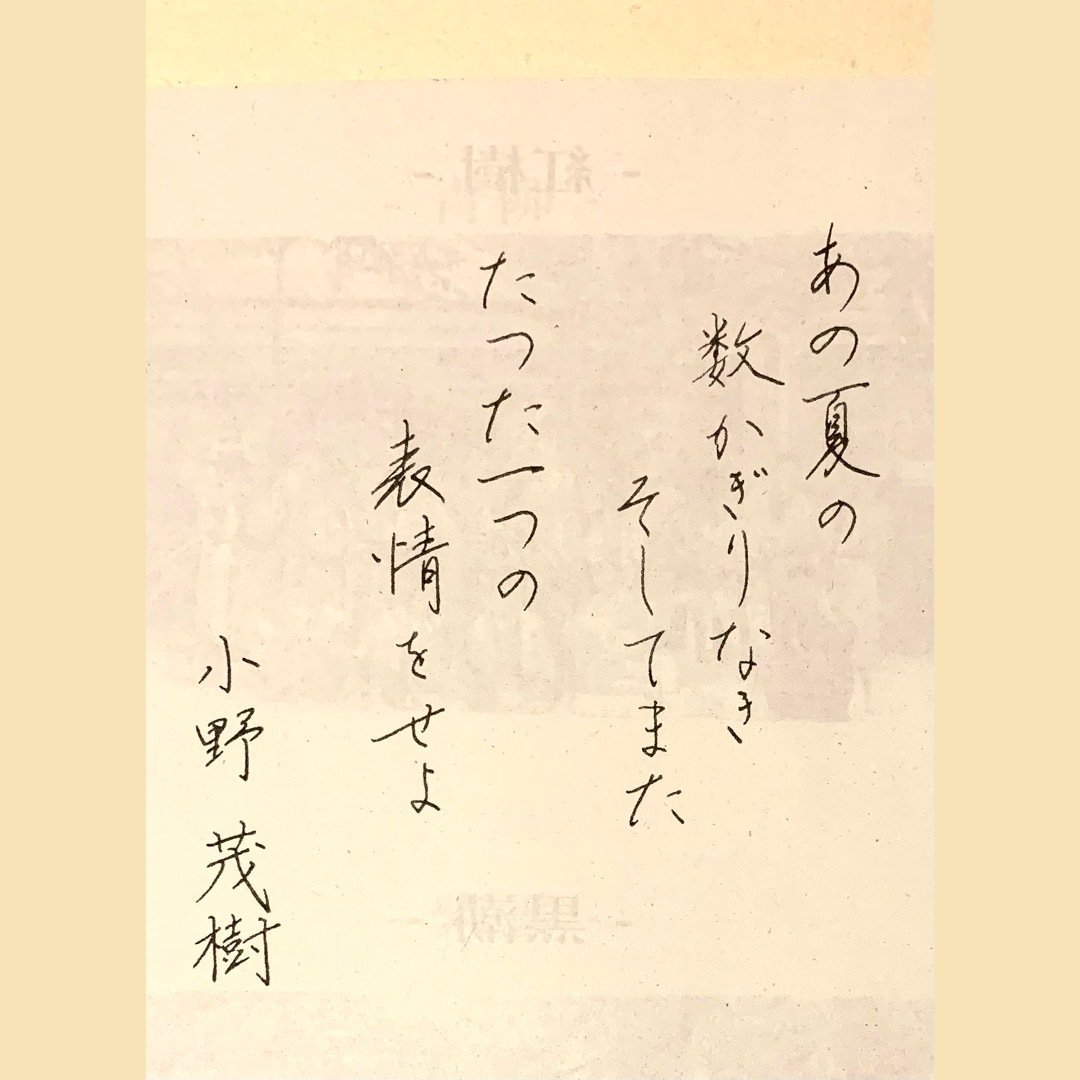 あの夏の
数かぎりなき
そしてまた
たつた一つの
表情をせよ
小野 茂樹
- 紅樹 -
- 黒潮 -